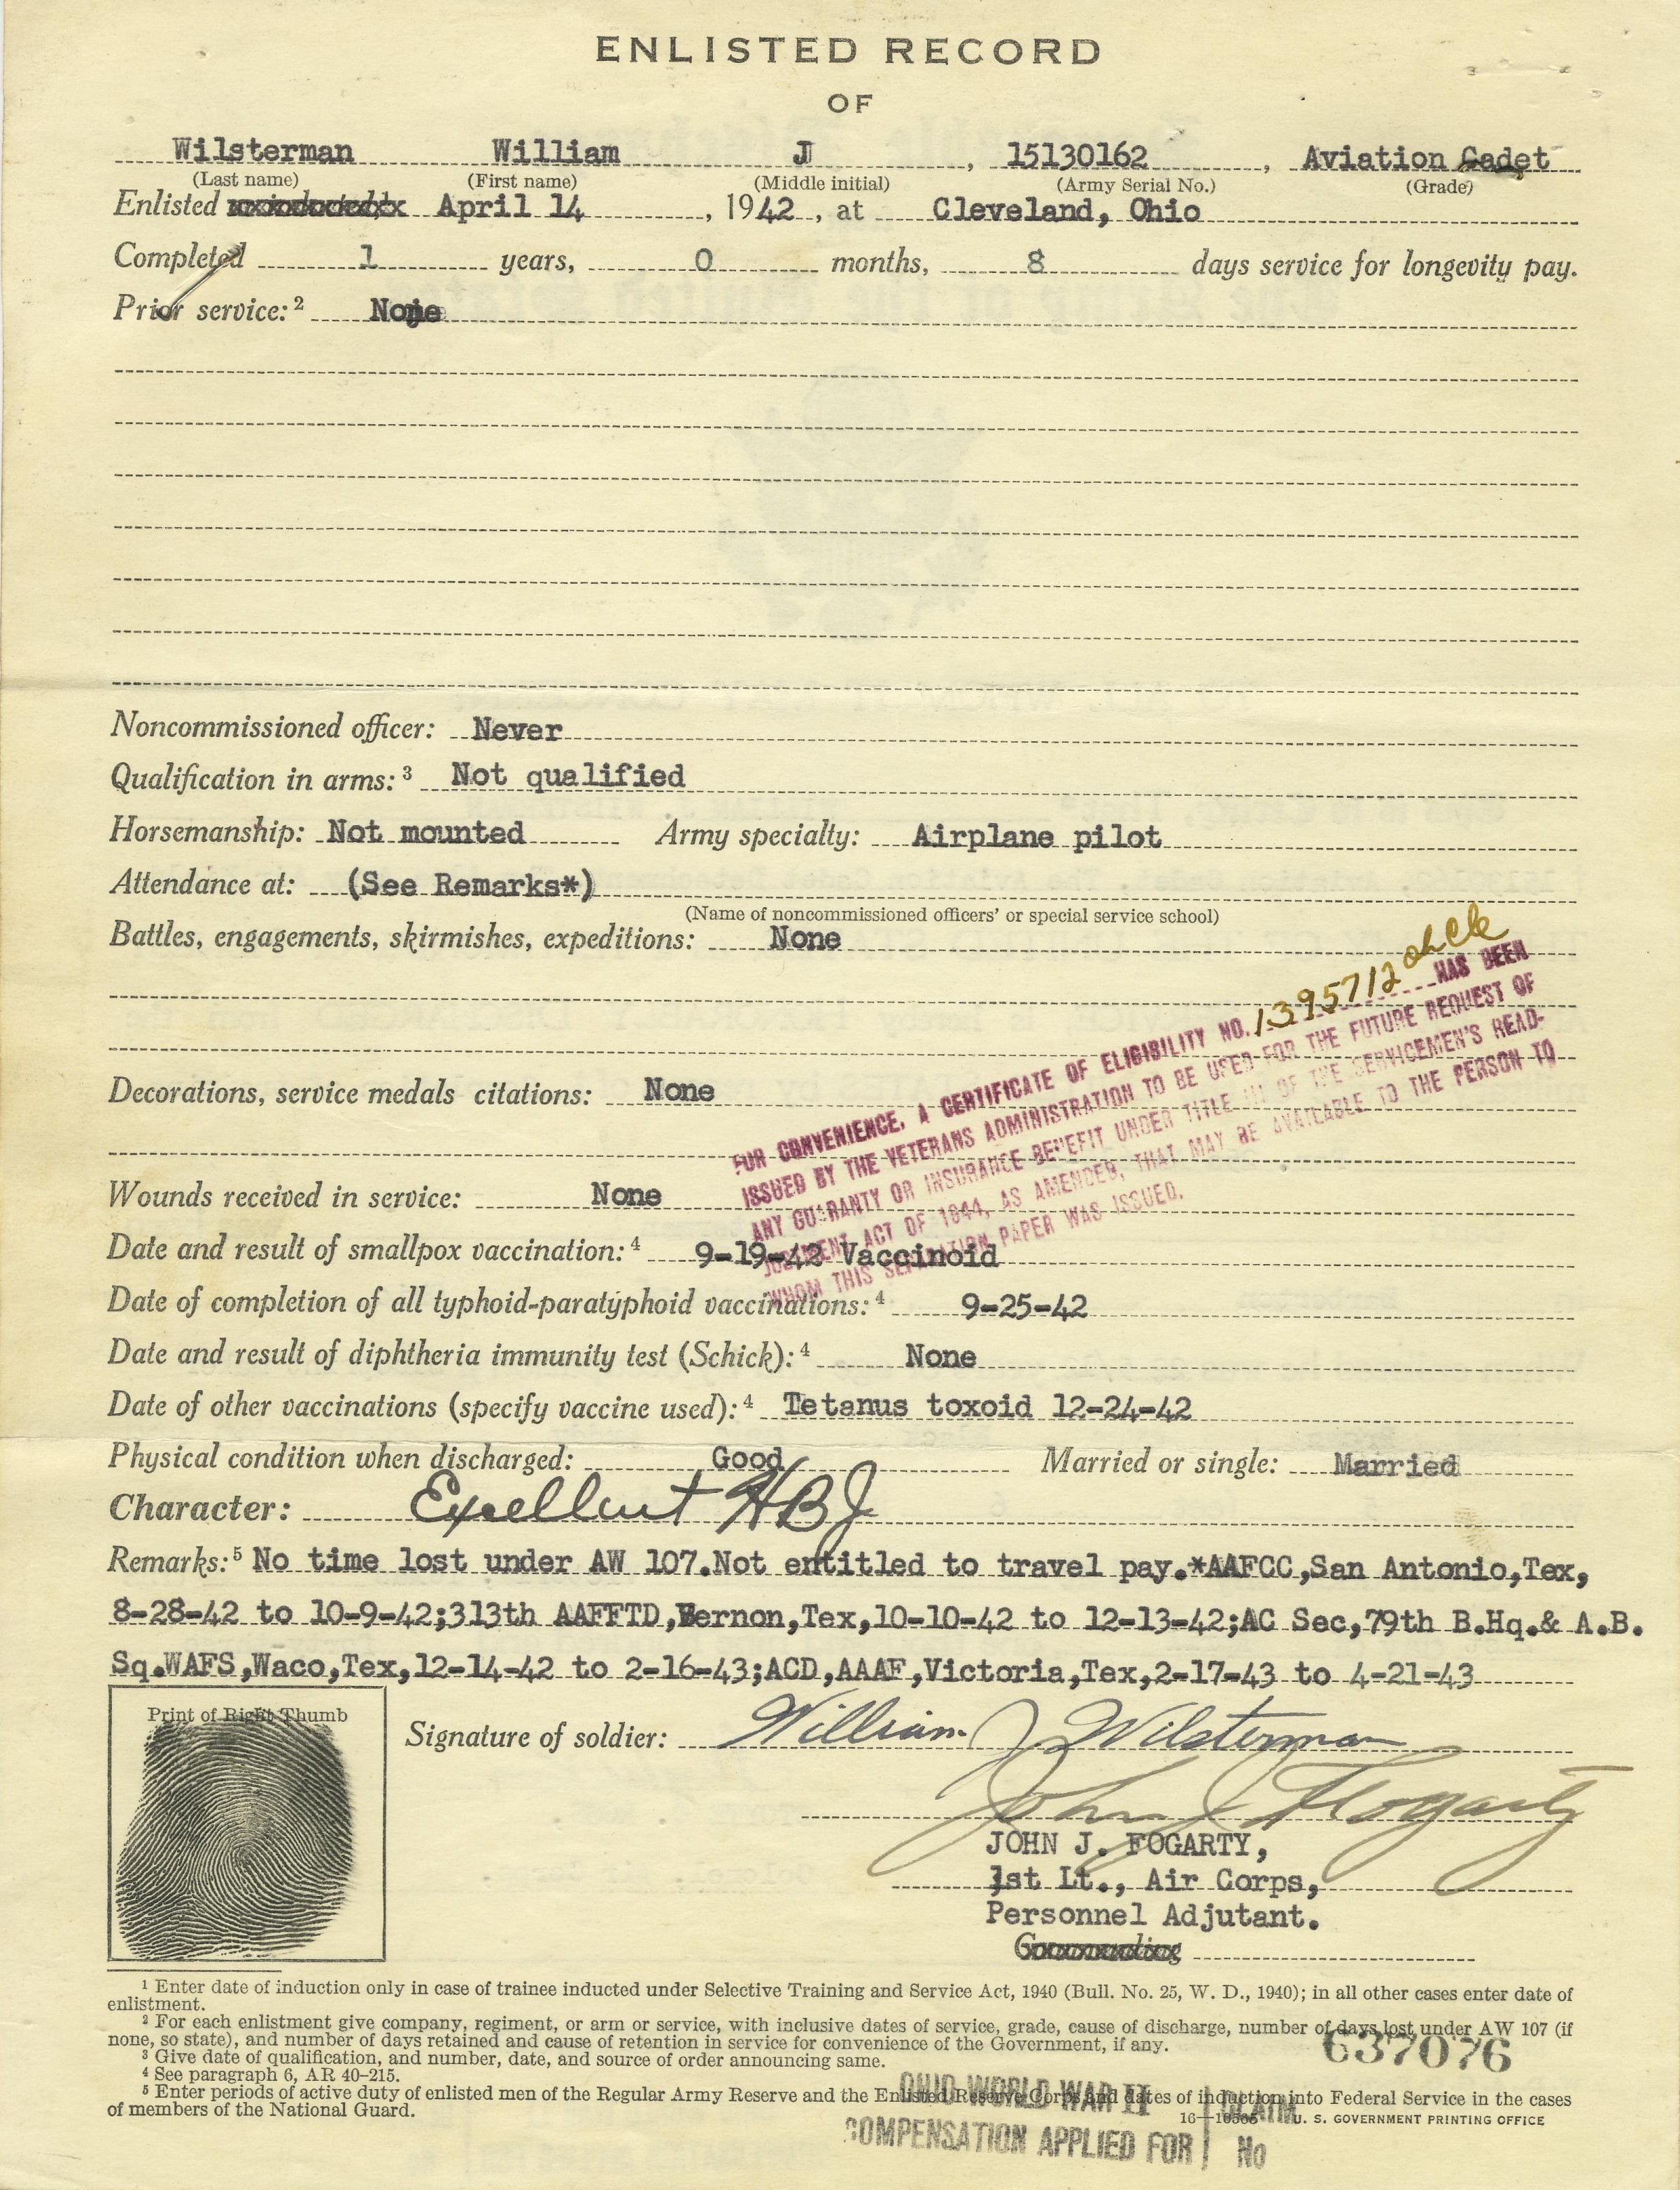 ENLISTED RECORD
OF
Wilsterman William J , 15130162 , Aviation Cadet
(Last name) (First name) (Middle initial) (Army Serial No.) (Grade)
Enlisted April 14 , 1942 , at Cleveland, Ohio
Completed 1 years, 0 months, 8 days service for longevity pay.
Prior service:² None
Noncommissioned officer: Never
Qualification in arms:³ Not qualified
Horsemanship: Not mounted Army specialty: Airplane pilot
Attendance at: (See Remarks*)
(Name of noncommissioned officers' or special service school)
Battles, engagements, skirmishes, expeditions: None
Decorations, service medals citations: None
FOR CONVENIENCE, A CERTIFICATE OF ELIGIBILITY NO. 1395712 HAS BEEN
ISSUED BY THE VETERANS ADMINISTRATION TO BE USED FOR THE FUTURE REQUEST OF
ANY GUARANTY OR INSURANCE BENEFIT UNDER TITLE III OF THE SERVICEMEN'S READ-
JUSTMENT ACT OF 1944, AS AMENDED, THAT MAY BE AVAILABLE TO THE PERSON TO
WHOM THIS SEPARATION PAPER WAS ISSUED.
Wounds received in service: None
Date and result of smallpox vaccination:⁴ 9-19-42 Vaccinoid
Date of completion of all typhoid-paratyphoid vaccinations:⁴ 9-25-42
Date and result of diphtheria immunity test (Schick):⁴ None
Date of other vaccinations (specify vaccine used):⁴ Tetanus toxoid 12-24-42
Physical condition when discharged: Good Married or single: Married
Character: Excellent HBJ
Remarks:⁵ No time lost under AW 107.Not entitled to travel pay.*AAFCC,San Antonio,Tex,
8-28-42 to 10-9-42;313th AAFFTD,Vernon,Tex,10-10-42 to 12-13-42;AC Sec,79th B.Hq.& A.B.
Sq.WAFS,Waco,Tex,12-14-42 to 2-16-43;ACD,AAAF,Victoria,Tex,2-17-43 to 4-21-43
Print of Right Thumb
Signature of soldier: William J Wilsterman
John J Fogarty
JOHN J. FOGARTY,
1st Lt., Air Corps,
Personnel Adjutant.
Commanding
¹ Enter date of induction only in case of trainee inducted under Selective Training and Service Act, 1940 (Bull. No. 25, W. D., 1940); in all other cases enter date of
enlistment.
² For each enlistment give company, regiment, or arm or service, with inclusive dates of service, grade, cause of discharge, number of days lost under AW 107 (if
none, so state), and number of days retained and cause of retention in service for convenience of the Government, if any.
³ Give date of qualification, and number, date, and source of order announcing same.
⁴ See paragraph 6, AR 40-215.
⁵ Enter periods of active duty of enlisted men of the Regular Army Reserve and the Enlisted Reserve Corps and dates of induction into Federal Service in the cases
of members of the National Guard.
U. S. GOVERNMENT PRINTING OFFICE
637076
OHIO WORLD WAR II CLAIM
COMPENSATION APPLIED FOR No